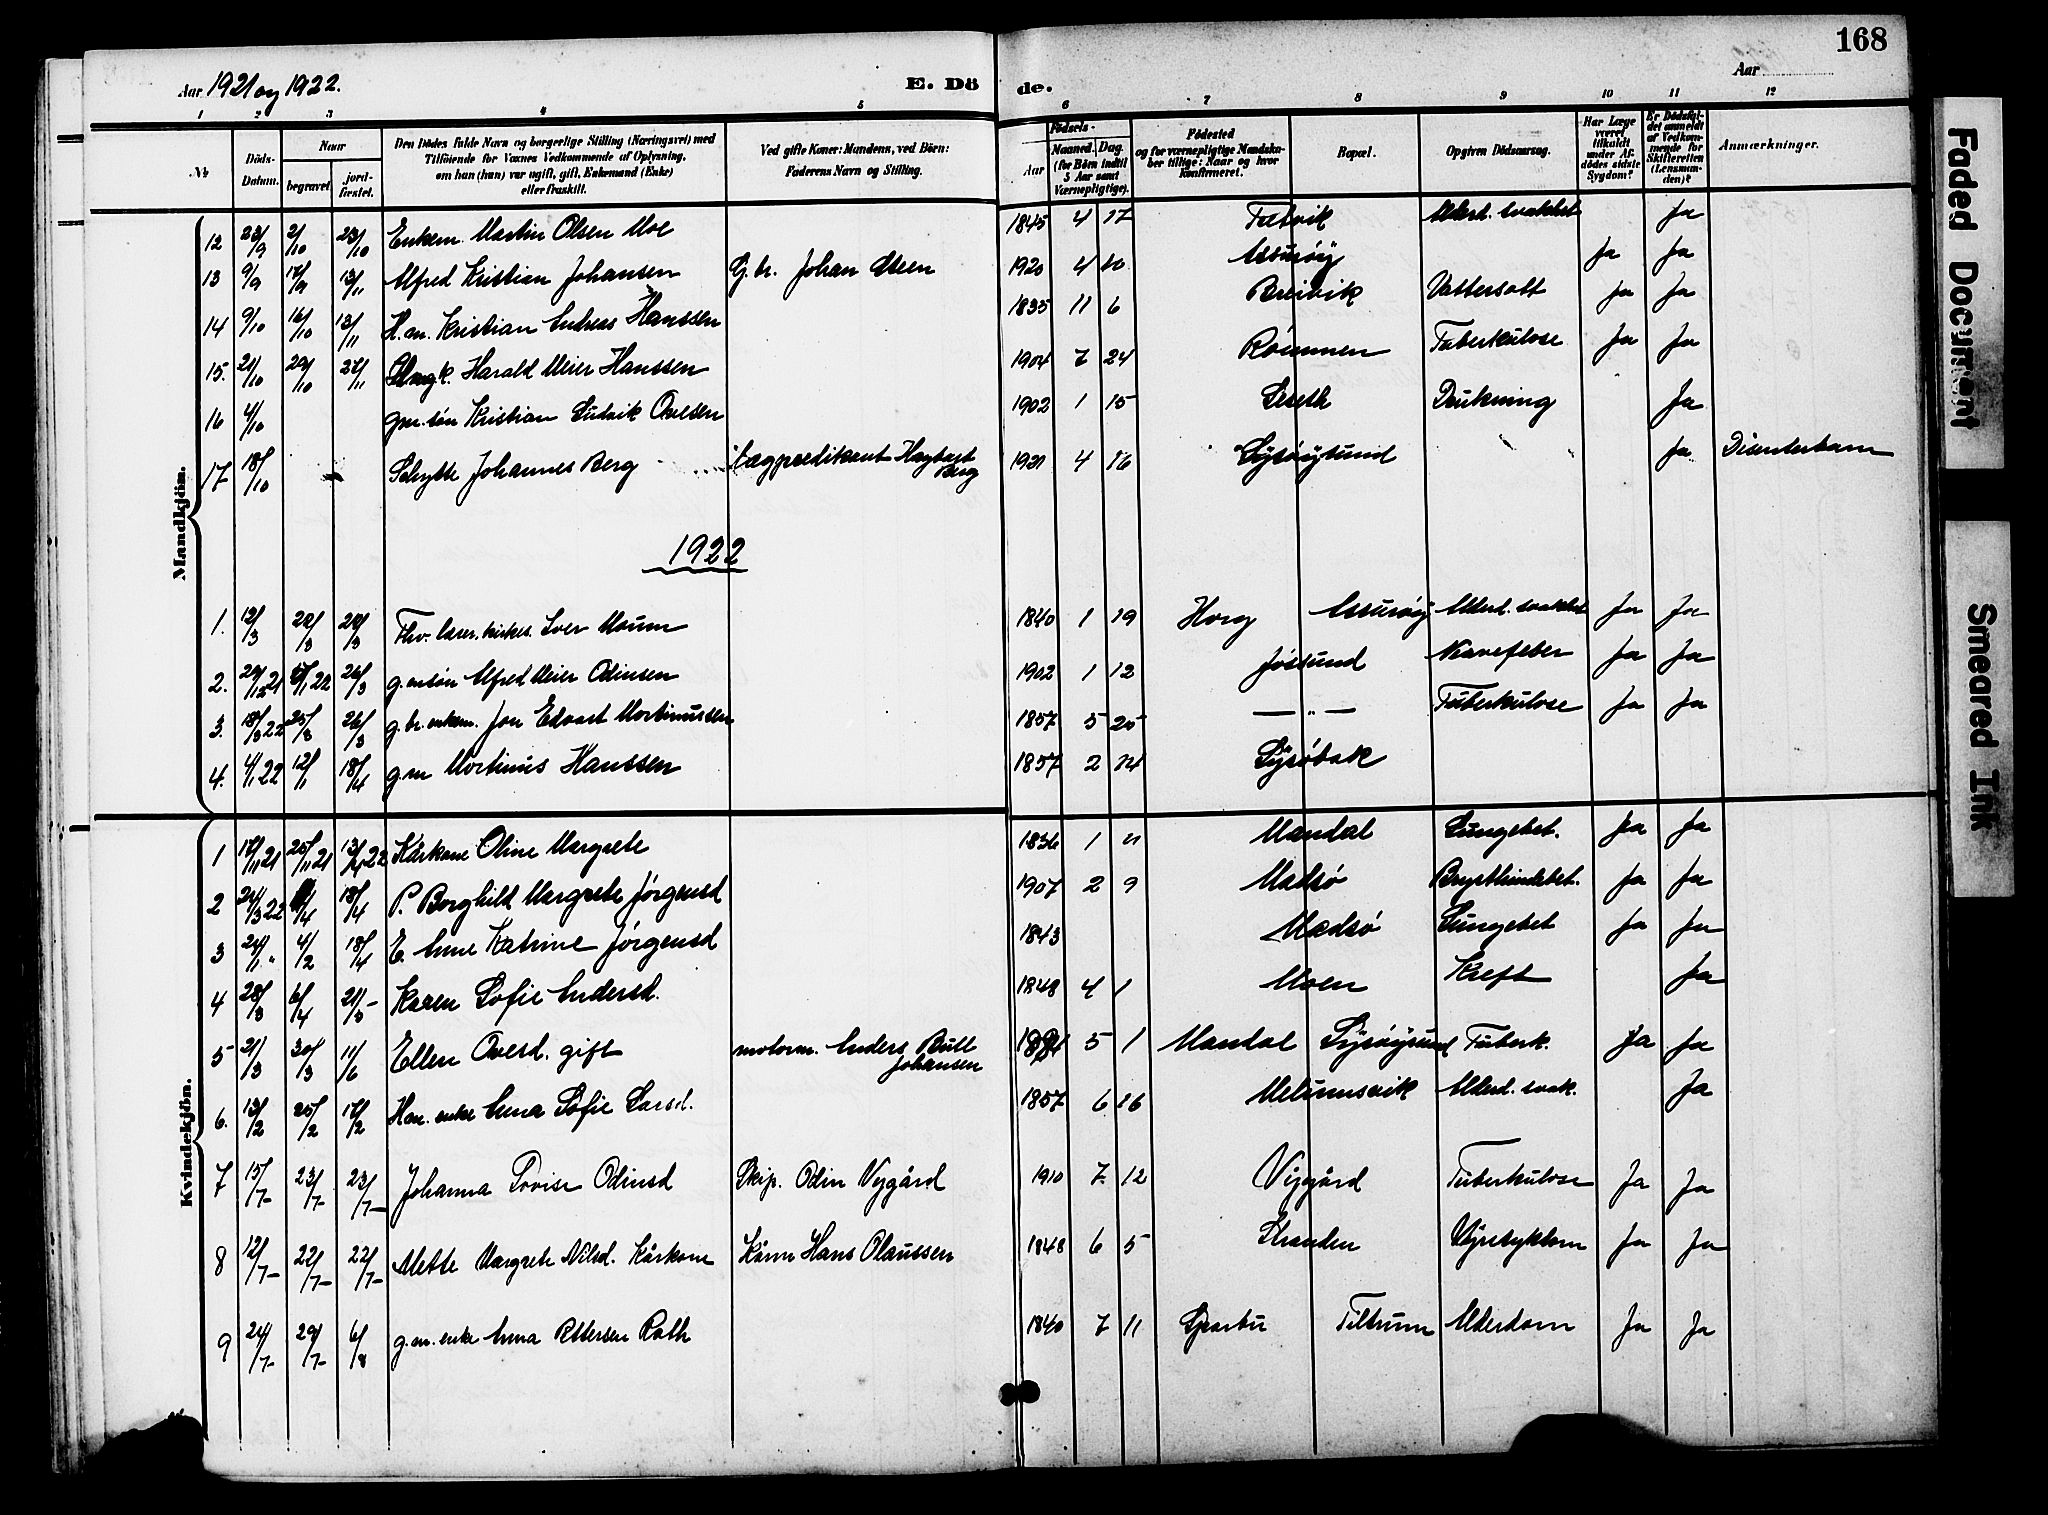 168
Aar 1921 og 1922. E. Dö de. Aar
1 2 3 4 5 6 7 8 9 10 11 12
№ Döds-Datum. Naar begravet. jord-fæstet. Den Dödes fulde Navn og borgerlige Stilling (Næringsvei) med Tilföiende for Voxnes Vedkommende af Oplysning, om han (hun) var ugift, gift, Enkemand (Enke) eller fraskilt. Ved gifte Koner: Mandens, ved Börn: Faderens Navn og Stilling. Födsels- Aar Maaned. Dag. (for Börn indtil 5 Aar samt Værnepligtige). Födested og for værnepligtige Mandskaber tillige: Naar og hvor konfirmeret. Bopæl. Opgiven Dödsaarsag. Har Læge været tilkaldt under Afdödes sidste Sygdom? Er Dödsfaldet anmeldt af Vedkommende for Skifteretten (Lensmanden)? Anmærkninger.
Mandkjön.
12 23/9 2/10 23/10 Enkem. Martin Olsen Moe 1845 4 17 Tætvik Alderd. svakhet Ja
13 9/9 17/9 13/11 Alfred Kristian Johansen G.br. Johan Steen 1920 4 10 Ja Ja
14 9/10 16/10 13/11 H.m. Kristian Andreas Hanssen 1835 11 6 Breivik Vattersott Ja Ja
15. 21/10 29/10 27/11 Ungk. Harald Meier Hanssen 1904 7 24 Rømmen Tuberkulose Ja Ja
16 4/10 gm. søn Kristian Ludvik Ovesen 1902 1 15 Leseth Drukning Ja
17 18/10 Schytte Johannes Berg Lægpredikant Hagbart Berg 1921 4 16 Lysøysund Ja Disenterbarn
1922
1. 12/3 22/3 22/3 Fhv. lærer, kirkes. Iver Moum 1840 1 19 Horg Alderd. svakhet Ja Ja
2. 29/12 21 22 26/3 g.m søn Alfred Meier Odinsen 1902 1 12 Jøssund Nervefeber Ja Ja
3. 18/3 22 25/3 26/3 g.br. enkem. Jon Edvart Mortinussen 1857 5 25 — „ — Tuberkulose Ja Ja
4. 4/1 22 12/1 18/4 gm Mortinus Hanssen 1857 2 14 Lysøbak
Kvindekjön.
1 17/11 21 25/11 21 22 Kårkone Oline Margrete 1836 1 Mandal Lungebet. Ja Ja
2 24/3 22 /4 18/4 P. Borghild Margrete Jørgensd 1907 2 9 Madsø Brysthindebet. Ja Ja
3 24/1 „ 4/2 18/4 E. Anne Katrine Jørgensd 1843 Madsø Lungebet Ja Ja
4 28/3 6/4 21/5 Karen Sofie Andersd. 1848 4 1 Moen Kreft Ja
5 21/3 30/3 11/6 Ellen Ovesd. gift motorm. Anders Bull Johansen 5 1 Mandal Lysøysund Tuberk. Ja Ja
6. 13/2 25/2 17/2 Hm. enke Anna Sofie Larsd. 1857 6 16 Melumsvik Alderd. svak. Ja
7 15/7 23/7 23/7 Johanna Lovise Odinsd Skip. Odin Vygård 1910 7 12 Vygård Tuberkulose Ja Ja
8 12/7 22/7 22/7 Mette Margrete Nilsd. Kårkone Kårm Hans Olaussen 1848 6 5 Stranden Nyresykdom Ja Ja
9 24/7 29/7 6/8 g.m. enke Anna Pettersen Roth 1840 7 11 Sparbu Tiltrum Alderdom Ja Ja
Faded Document
Smeared Ink